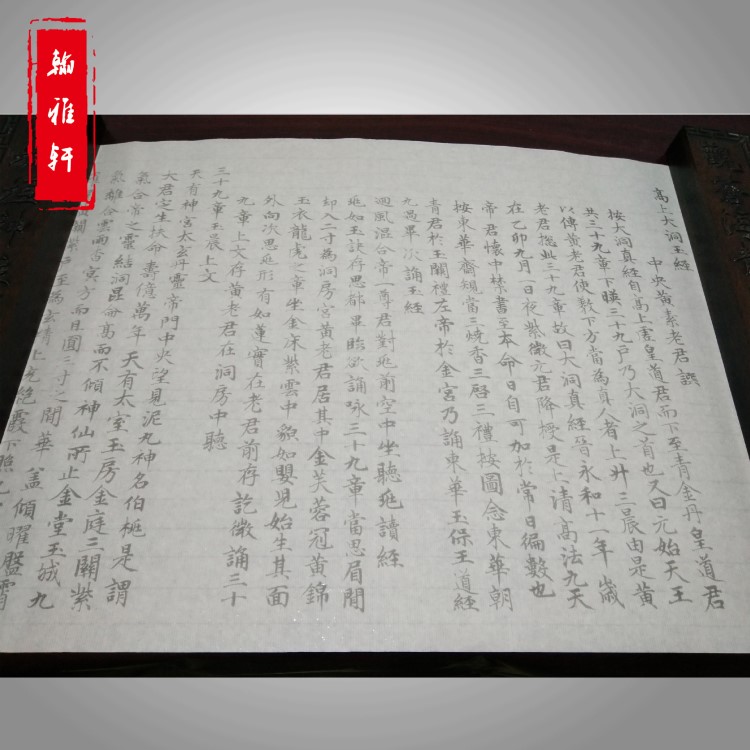 翰雅轩
高上大洞玉經
中央黃素老君譔
按大洞真經自高上虛皇道君而下至青金丹皇道君
共三十九章下暎三十九戶乃大洞之首也又曰元始天王
以傳黃老君使教下方當為真人者上升三晨由是黃
老君揔此三十九章故曰大洞真經晉永和十一年歲
在乙卯九月一日夜紫微元君降授是上清高法九天
帝君懷中禁書至本命日自可加於常日徧數也
按東華齋規當三燒香三啓三禮按圖念東華朝
青君於玉闕禮左帝於金宮乃誦東華玉保王道經
九徧畢次誦玉經
迴風混合帝一尊君對𠒎前空中坐聽𠒎讀經
𠒎如玉訣存思都畢眙欲誦咏三十九章當思眉間
却入二寸為洞房宮黃老君居其中金芙蓉冠黃錦
玉衣龍虎之章坐金床紫雲中貌如嬰兒始生其面
外向次思𠒎形有如蓮實在老君前存訖微誦三十
九章上文存黃老君在洞房中聽
三十九章玉晨上文
天有神宮太玄丹靈帝門中央望見泥丸神名伯桃是謂
大君定生扶命壽傖萬年天有太室玉房金庭三關紫
氣合帝之靈結洞昆崙高而不傾神仙所止金堂玉城九
氣離合雲雨杳冥方而且圓三寸之間華蓋傾曜盤霄